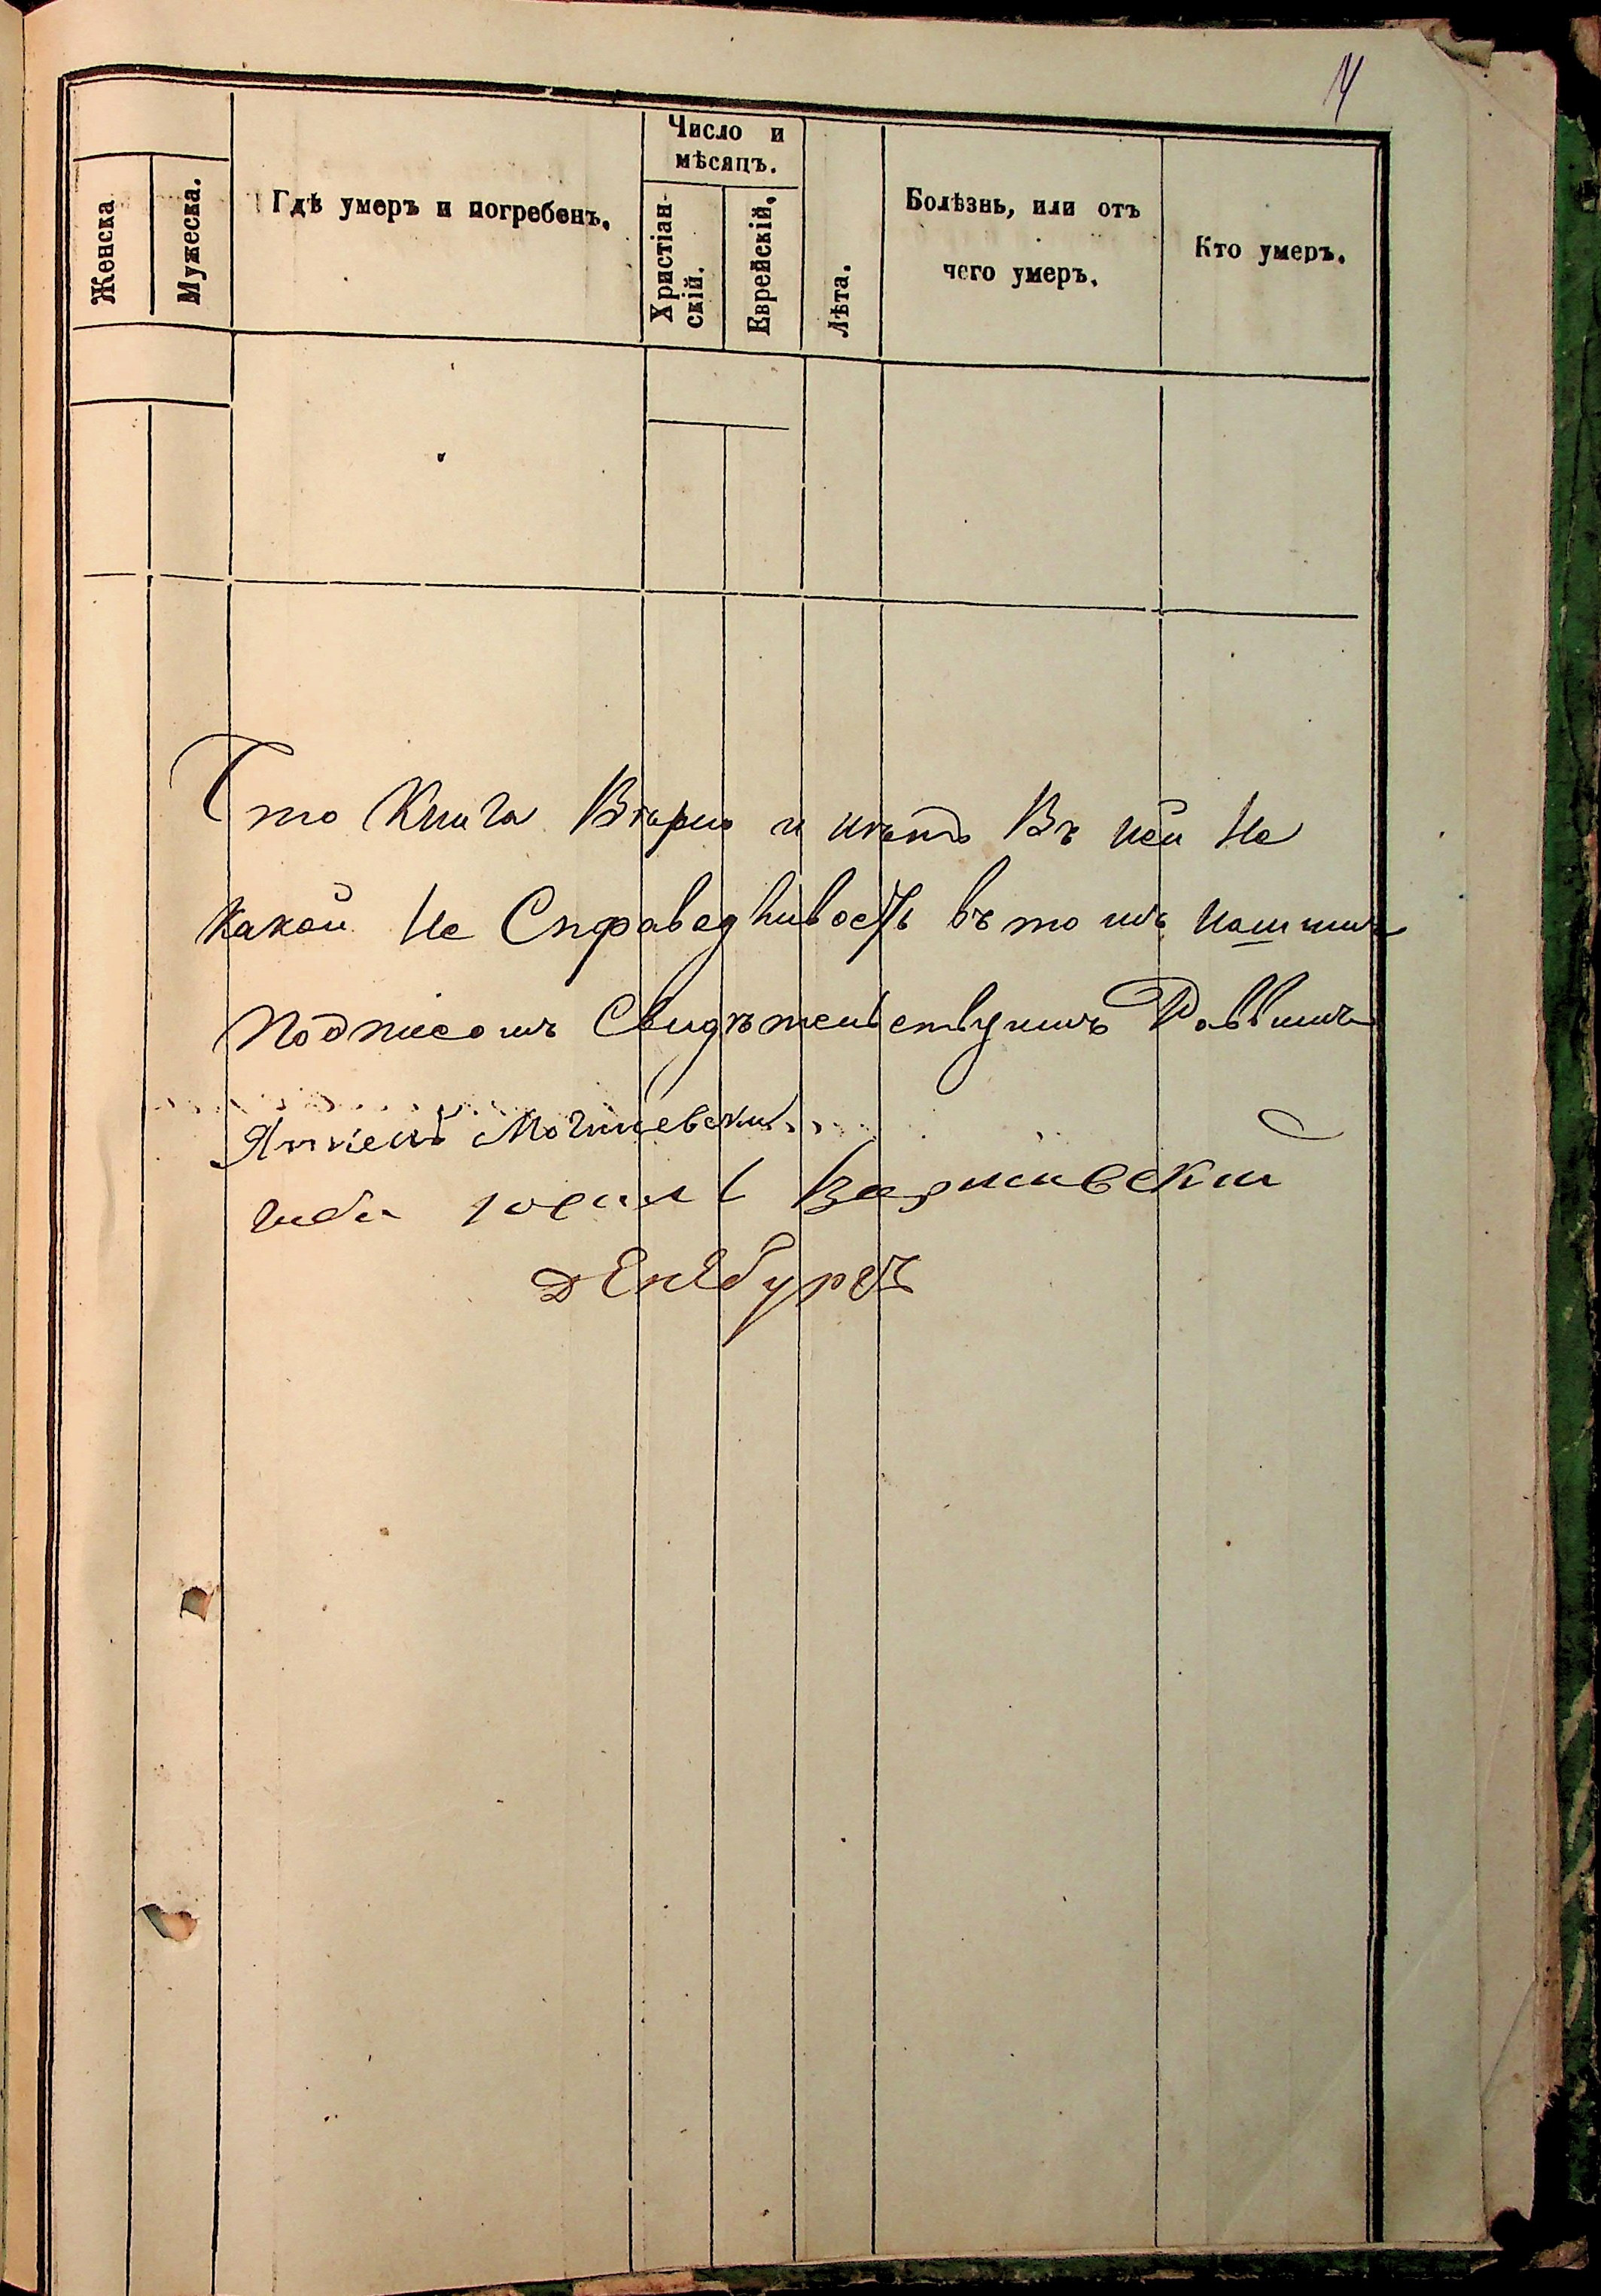 14
Женска
Мужеска.
Гдѣ умеръ и погребенъ.
Число и
мѣсяцъ.
Христіан-
скій.
Еврейскій.
Лѣта.
Болѣзнь, или отъ
чего умеръ.
Кто умеръ.
Что Книга Вѣрно и нѣтъ Въ ней Не
какой Не Справедливость въ томъ нашимъ
Подписомъ Свидѣтельствуимъ Раввинъ
Могилевский
Варшавский